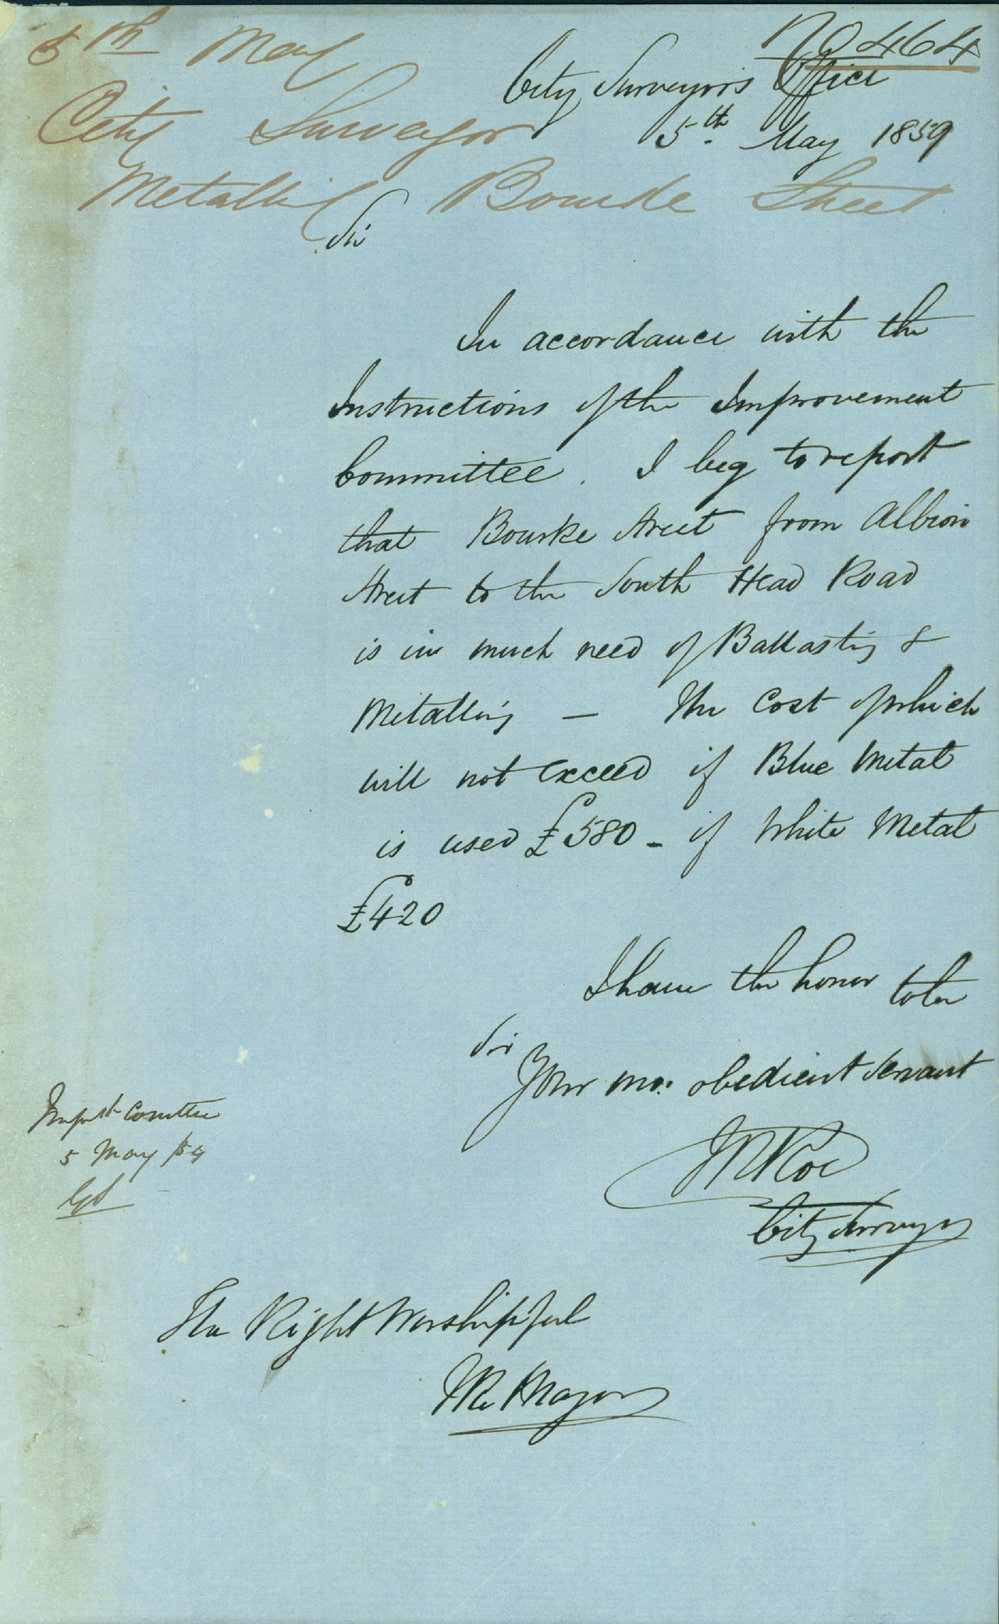 No 464
5th May
City Surveyor
Metalling Bourke Street
City Surveyor's Office
5th. May 1859
Sir
In accordance with the
Instructions of the Improvement
Committee. I beg to report
that Bourke Street from Albion
Street to the South Head Road
is in much need of Ballasting &
Metalling — The Cost of which
will not exceed if Blue Metal
is used £580 - if White Metal
£420
I have the honor to be
Sir
Your mo: obedient Servant
City Surveyor
Committee
5 May /59
The Right Worshipful
The Mayor